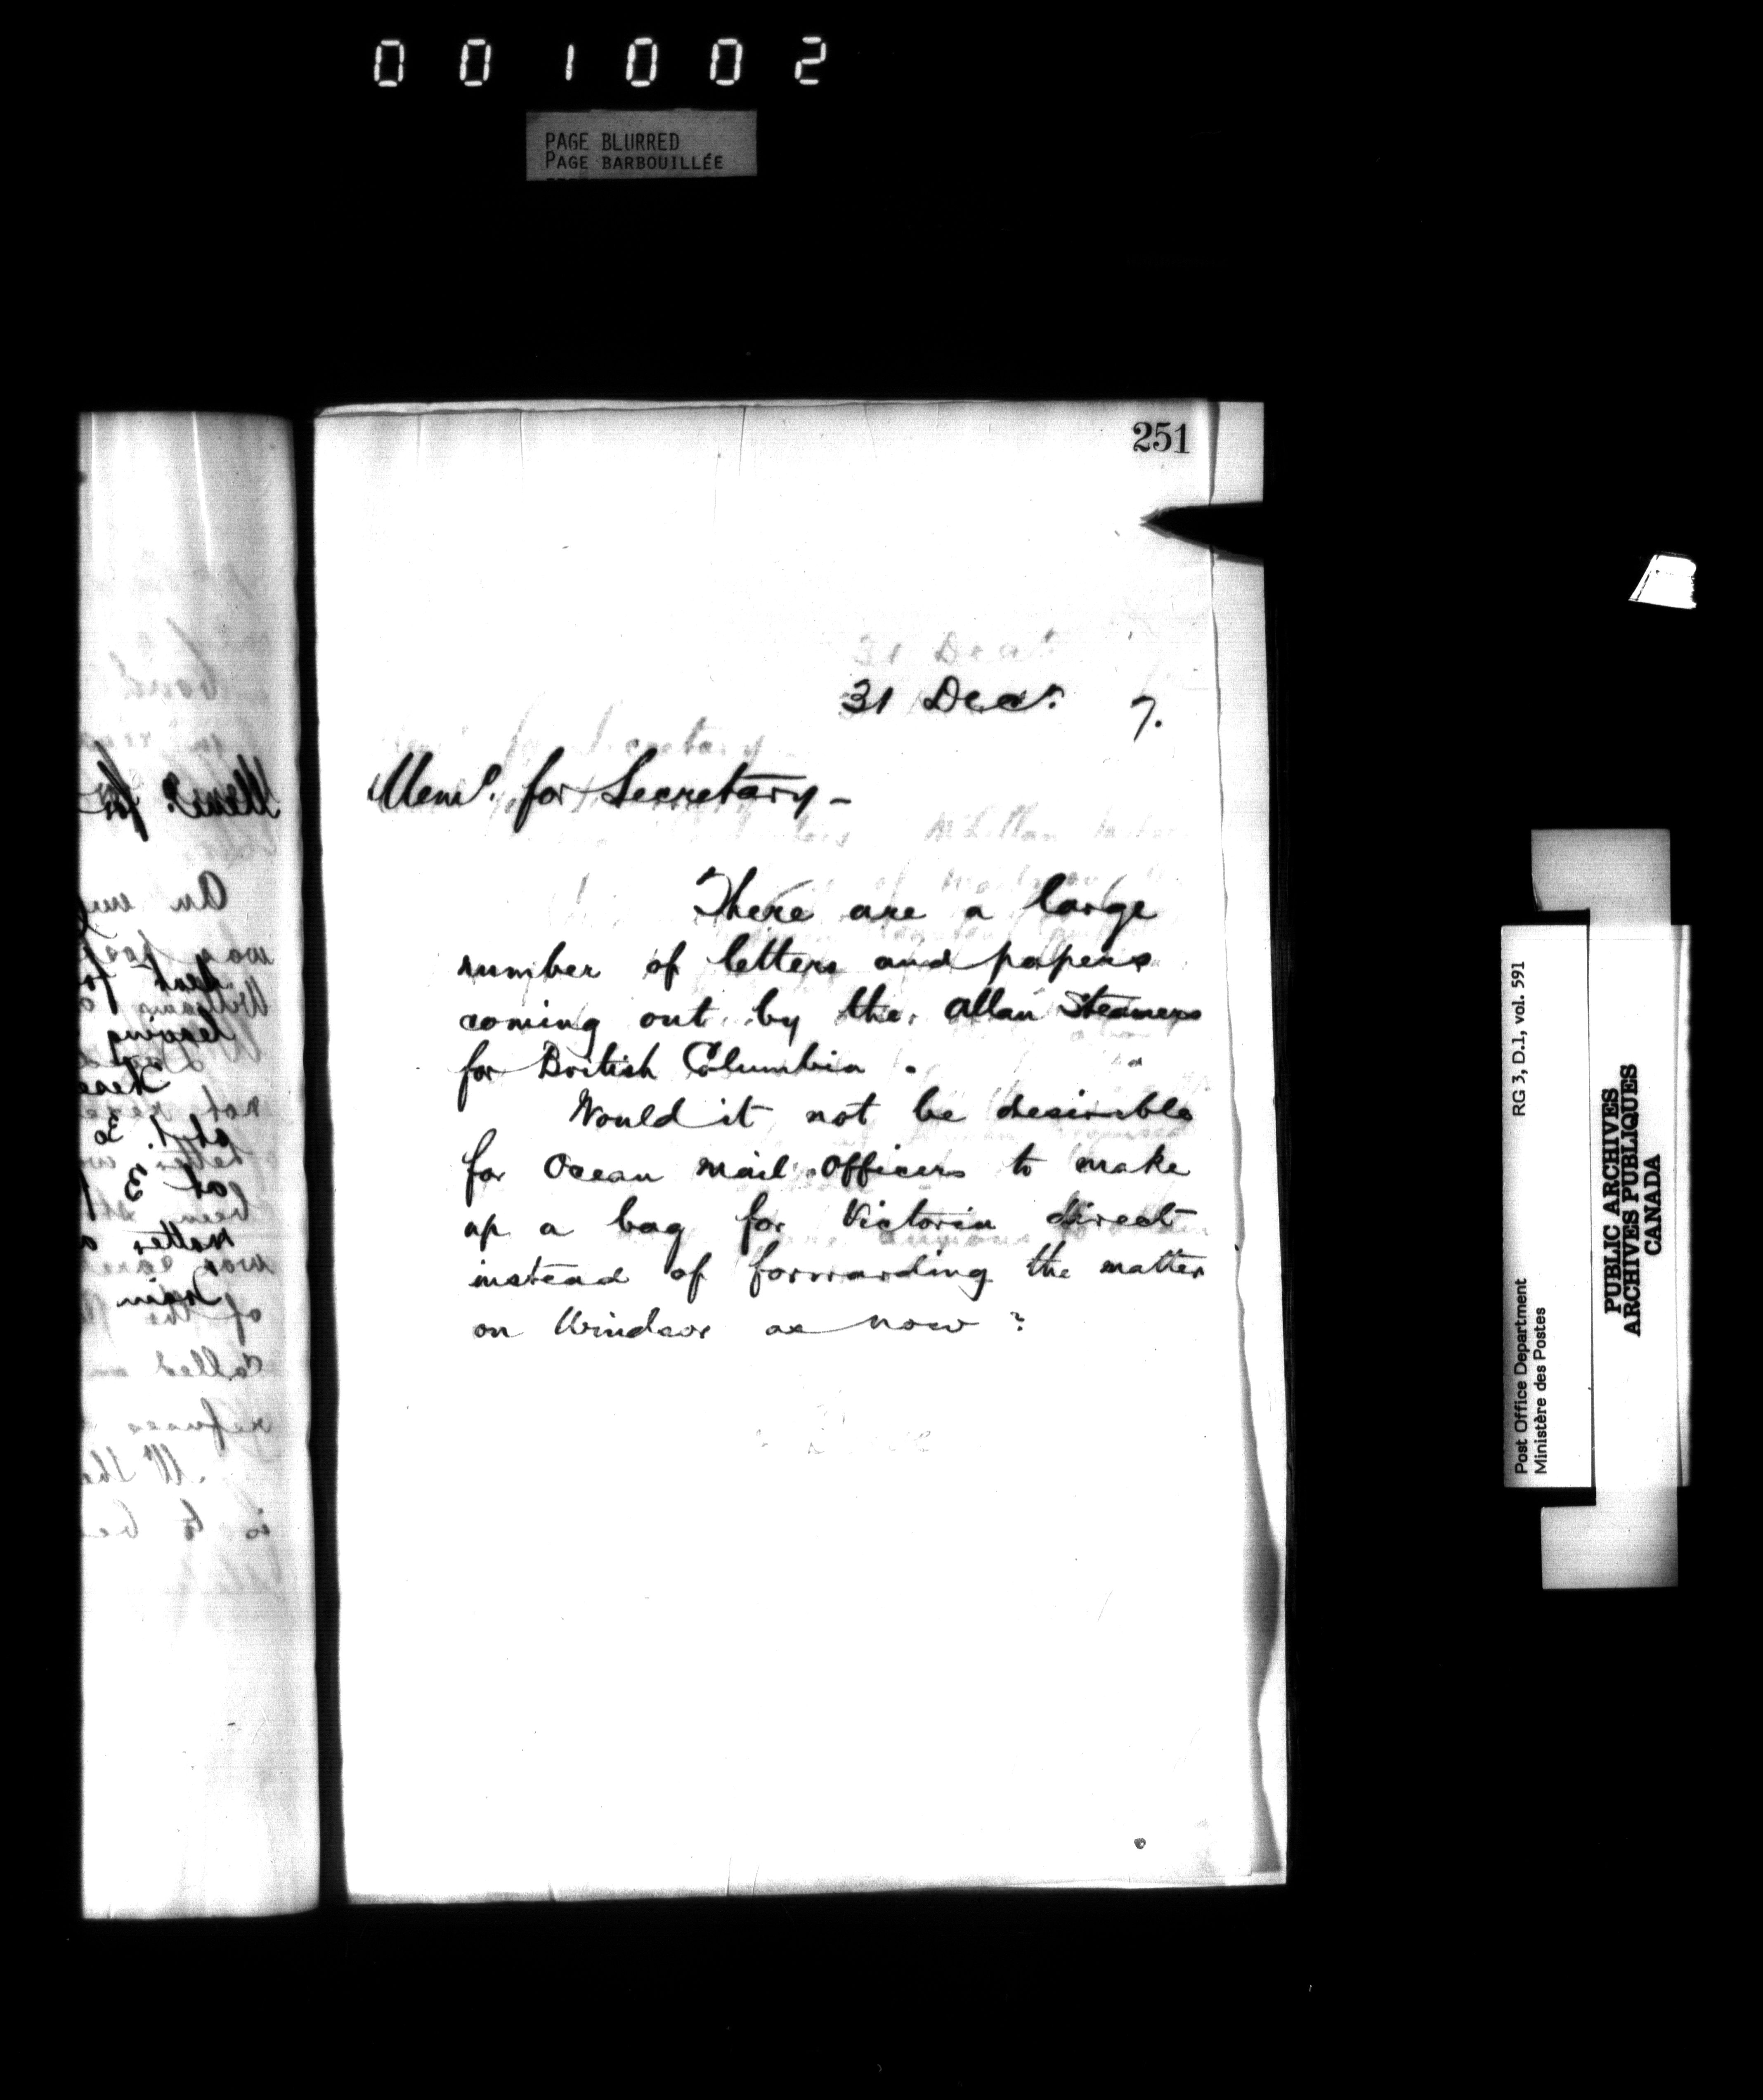 001002
PAGE BLURRED
PAGE BARBOUILLÉE
251
31 Decr. 7.
Memo. for Secretary -
There are a large
number of letters and papers
coming out by the Allan Steamers
for British Columbia.
Would it not be desirable
for Ocean Mail Officers to make
up a bag for Victoria direct
instead of forwarding the matter
on Windsor as now?
RG 3, D.1, vol. 591
Post Office Department
Ministère des Postes
PUBLIC ARCHIVES
ARCHIVES PUBLIQUES
CANADA